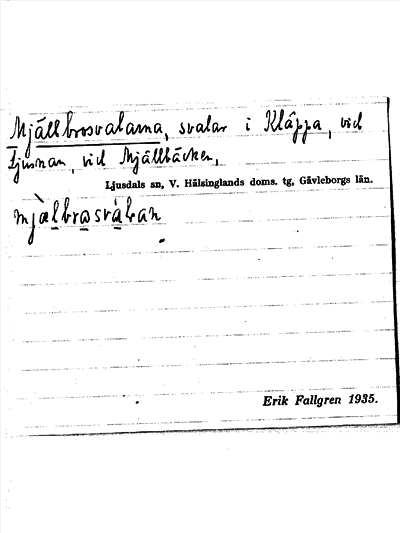 Mjällbrosvalarna, svalar i Kläppa, vid
Ljusnan, vid Mjällbäcken,
Ljusdals sn, V. Hälsinglands doms. tg, Gävleborgs län.
Erik Fallgren 1935.